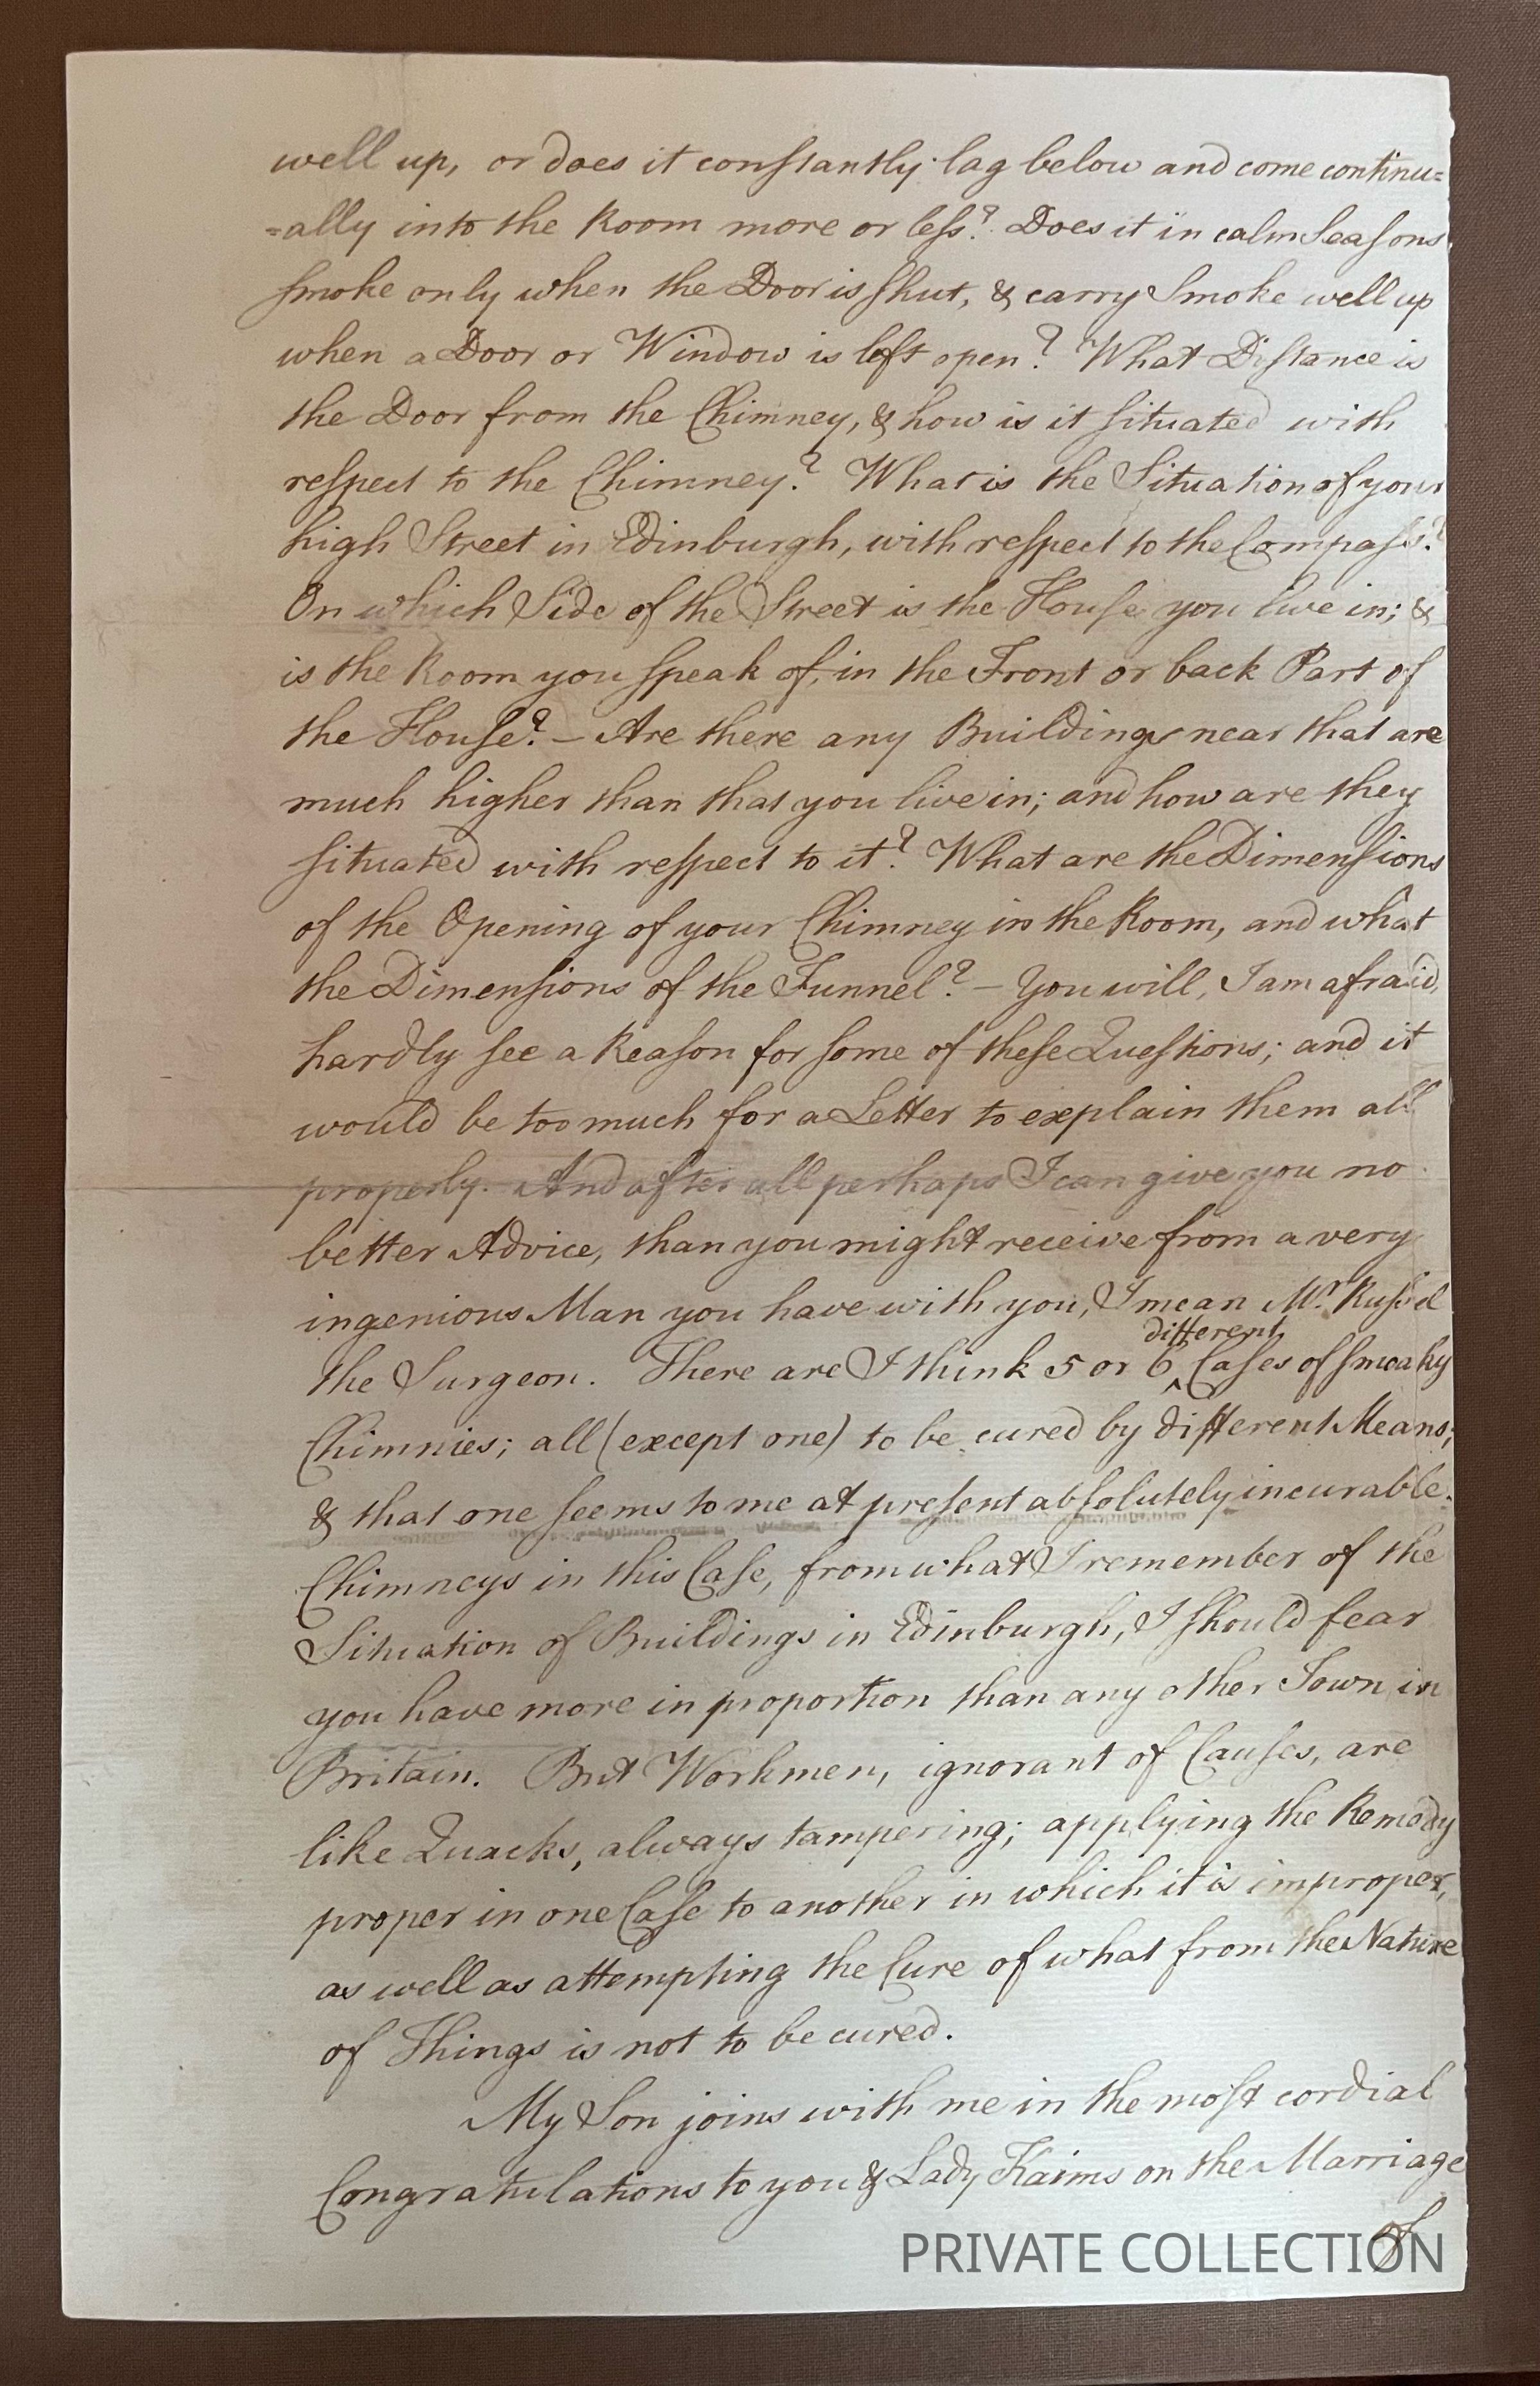 well up, or does it constantly lag below and come continu=
=ally into the Room more or less? Does it in calm Seasons
smoke only when the Door is shut, & carry Smoke well up
when a Door or Window is left open? What Distance is
the Door from the Chimney, & how is it situated with
respect to the Chimney? What is the Situation of your
high Street in Edinburgh, with respect to the Compass?
On which Side of the Street is the House you live in; &
is the Room you speak of, in the Front or back Part of
the House? — Are there any Buildings near that are
much higher than that you live in; and how are they
situated with respect to it? What are the Dimensions
of the Opening of your Chimney in the Room, and what
the Dimensions of the Funnel? — You will, I am afraid,
hardly see a Reason for some of these Questions; and it
would be too much for a Letter to explain them all
properly. And after all perhaps I can give you no
better Advice, than you might receive from a very
ingenious Man you have with you, I mean Mr. Russel
different
the Surgeon. There are I think 5 or 6 ^ Cases of smoaky
Chimnies; all (except one) to be cured by different Means;
& that one seems to me at present absolutely incurable.
Chimneys in this Case, from what I remember of the
Situation of Buildings in Edinburgh, I should fear
you have more in proportion than any other Town in
Britain. But Workmen, ignorant of Causes, are
like Quacks, always tampering; applying the Remedy
proper in one Case to another in which it is improper,
as well as attempting the Cure of what from the Nature
of Things is not to be cured.
My Son joins with me in the most cordial
Congratulations to you & Lady Kaims on the Marriage
of
PRIVATE COLLECTION